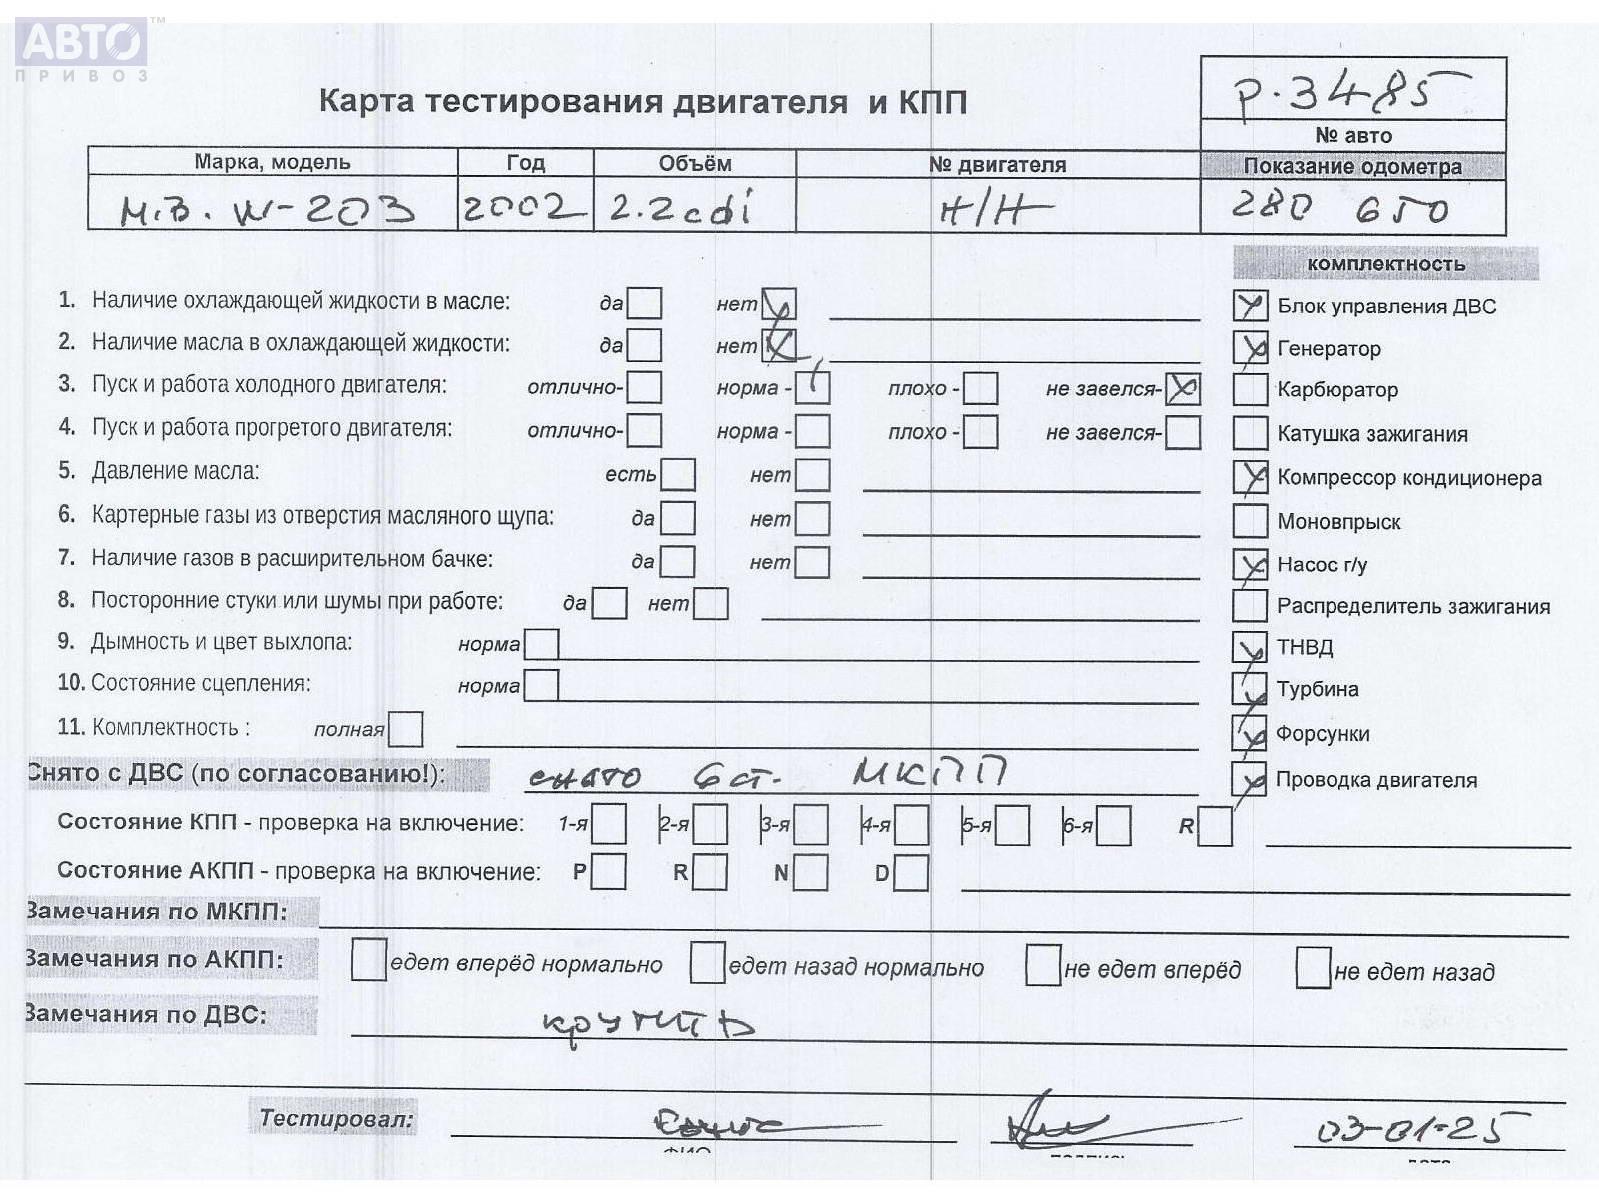 АВТО™
ПРИВОЗ
Карта тестирования двигателя и КПП
р.3485
№ авто
Марка, модель Год Объём № двигателя Показание одометра
М.В. W-203 2002 2.2cdi Н/Н 280 650
комплектность
1. Наличие охлаждающей жидкости в масле: да нет Блок управления ДВС
2. Наличие масла в охлаждающей жидкости: да нет Генератор
3. Пуск и работа холодного двигателя: отлично- норма - плохо - не завелся- Карбюратор
4. Пуск и работа прогретого двигателя: отлично- норма - плохо - не завелся- Катушка зажигания
5. Давление масла: есть нет Компрессор кондиционера
6. Картерные газы из отверстия масляного щупа: да нет Моновпрыск
7. Наличие газов в расширительном бачке: да нет Насос г/у
8. Посторонние стуки или шумы при работе: да нет Распределитель зажигания
9. Дымность и цвет выхлопа: норма ТНВД
10. Состояние сцепления: норма Турбина
11. Комплектность : полная Форсунки
Снято с ДВС (по согласованию!): снято 6ст. МКПП Проводка двигателя
Состояние КПП - проверка на включение: 1-я 2-я 3-я 4-я 5-я 6-я R
Состояние АКПП - проверка на включение: P R N D
Замечания по МКПП:
Замечания по АКПП: едет вперёд нормально едет назад нормально не едет вперёд не едет назад
Замечания по ДВС: крутить
Тестировал: 03-01-25
ФИО подпись дата